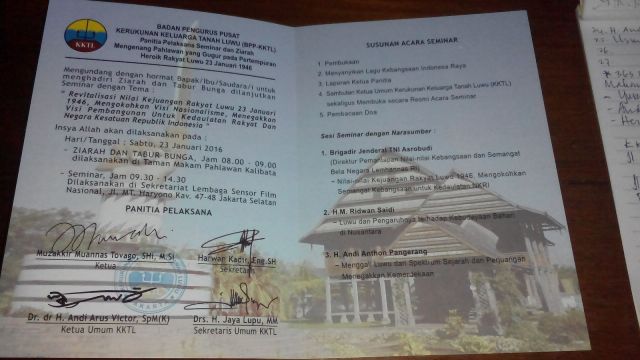 BADAN PENGURUS PUSAT
KERUKUNAN KELUARGA TANAH LUWU (BPP-KKTL)
Panitia Pelaksana Seminar dan Ziarah
Mengenang Pahlawan yang Gugur pada Pertempuran
Heroik Rakyat Luwu 23 Januari 1946
KKTL
Mengundang dengan hormat Bapak/Ibu/Saudara/i untuk
menghadiri Ziarah dan Tabur Bunga dilanjutkan
Seminar dengan Tema :
" Revitalisasi Nilai Kejuangan Rakyat Luwu 23 Januari
1946, Mengokohkan Visi Nasionalisme, Menegakkan
Visi Pembangunan Untuk Kedaulatan Rakyat Dan
Negara Kesatuan Republik Indonesia "
Insya Allah akan dilaksanakan pada :
Hari/Tanggal : Sabtu, 23 Januari 2016
- ZIARAH DAN TABUR BUNGA, Jam 08.00 - 09.00
dilaksanakan di Taman Makam Pahlawan Kalibata
- Seminar, Jam 09.30 - 14.30
Dilaksanakan di Sekretariat Lembaga Sensor Film
Nasional, Jl. MT. Haryono Kav. 47-48 Jakarta Selatan
PANITIA PELAKSANA
Muzakkir Muannas Tovago, SHi, M.Si
Ketua
Harwan Kadir, Eng.SH
Sekretaris
Dr. dr H. Andi Arus Victor, SpM(K)
Ketua Umum KKTL
Drs. H. Jaya Lupu, MM
Sekretaris Umum KKTL
SUSUNAN ACARA SEMINAR
1. Pembukaan
2. Menyanyikan Lagu Kebangsaan Indonesia Raya
3. Laporan Ketua Panitia
4. Sambutan Ketua Umum Kerukunan Keluarga Tanah Luwu (KKTL)
sekaligus Membuka secara Resmi Acara Seminar
5. Pembacaan Doa
Sesi Seminar dengan Narasumber :
1. Brigadir Jenderal TNI Asrobudi
(Direktur Pemantapan Nilai-nilai Kebangsaan dan Semangat
Bela Negara Lemhannas RI)
- Nilai-nilai Kejuangan Rakyat Luwu 1946, Mengokohkan
Semangat Kebangsaan untuk Kedaulatan NKRI
2. H.M. Ridwan Saidi
- Luwu dan Pengaruhnya terhadap Kebudayaan Bahari
di Nusantara
3. H. Andi Anthon Pangerang
- Menggali Luwu dari Spektrum Sejarah dan Perjuangan
Menegakkan Kemerdekaan